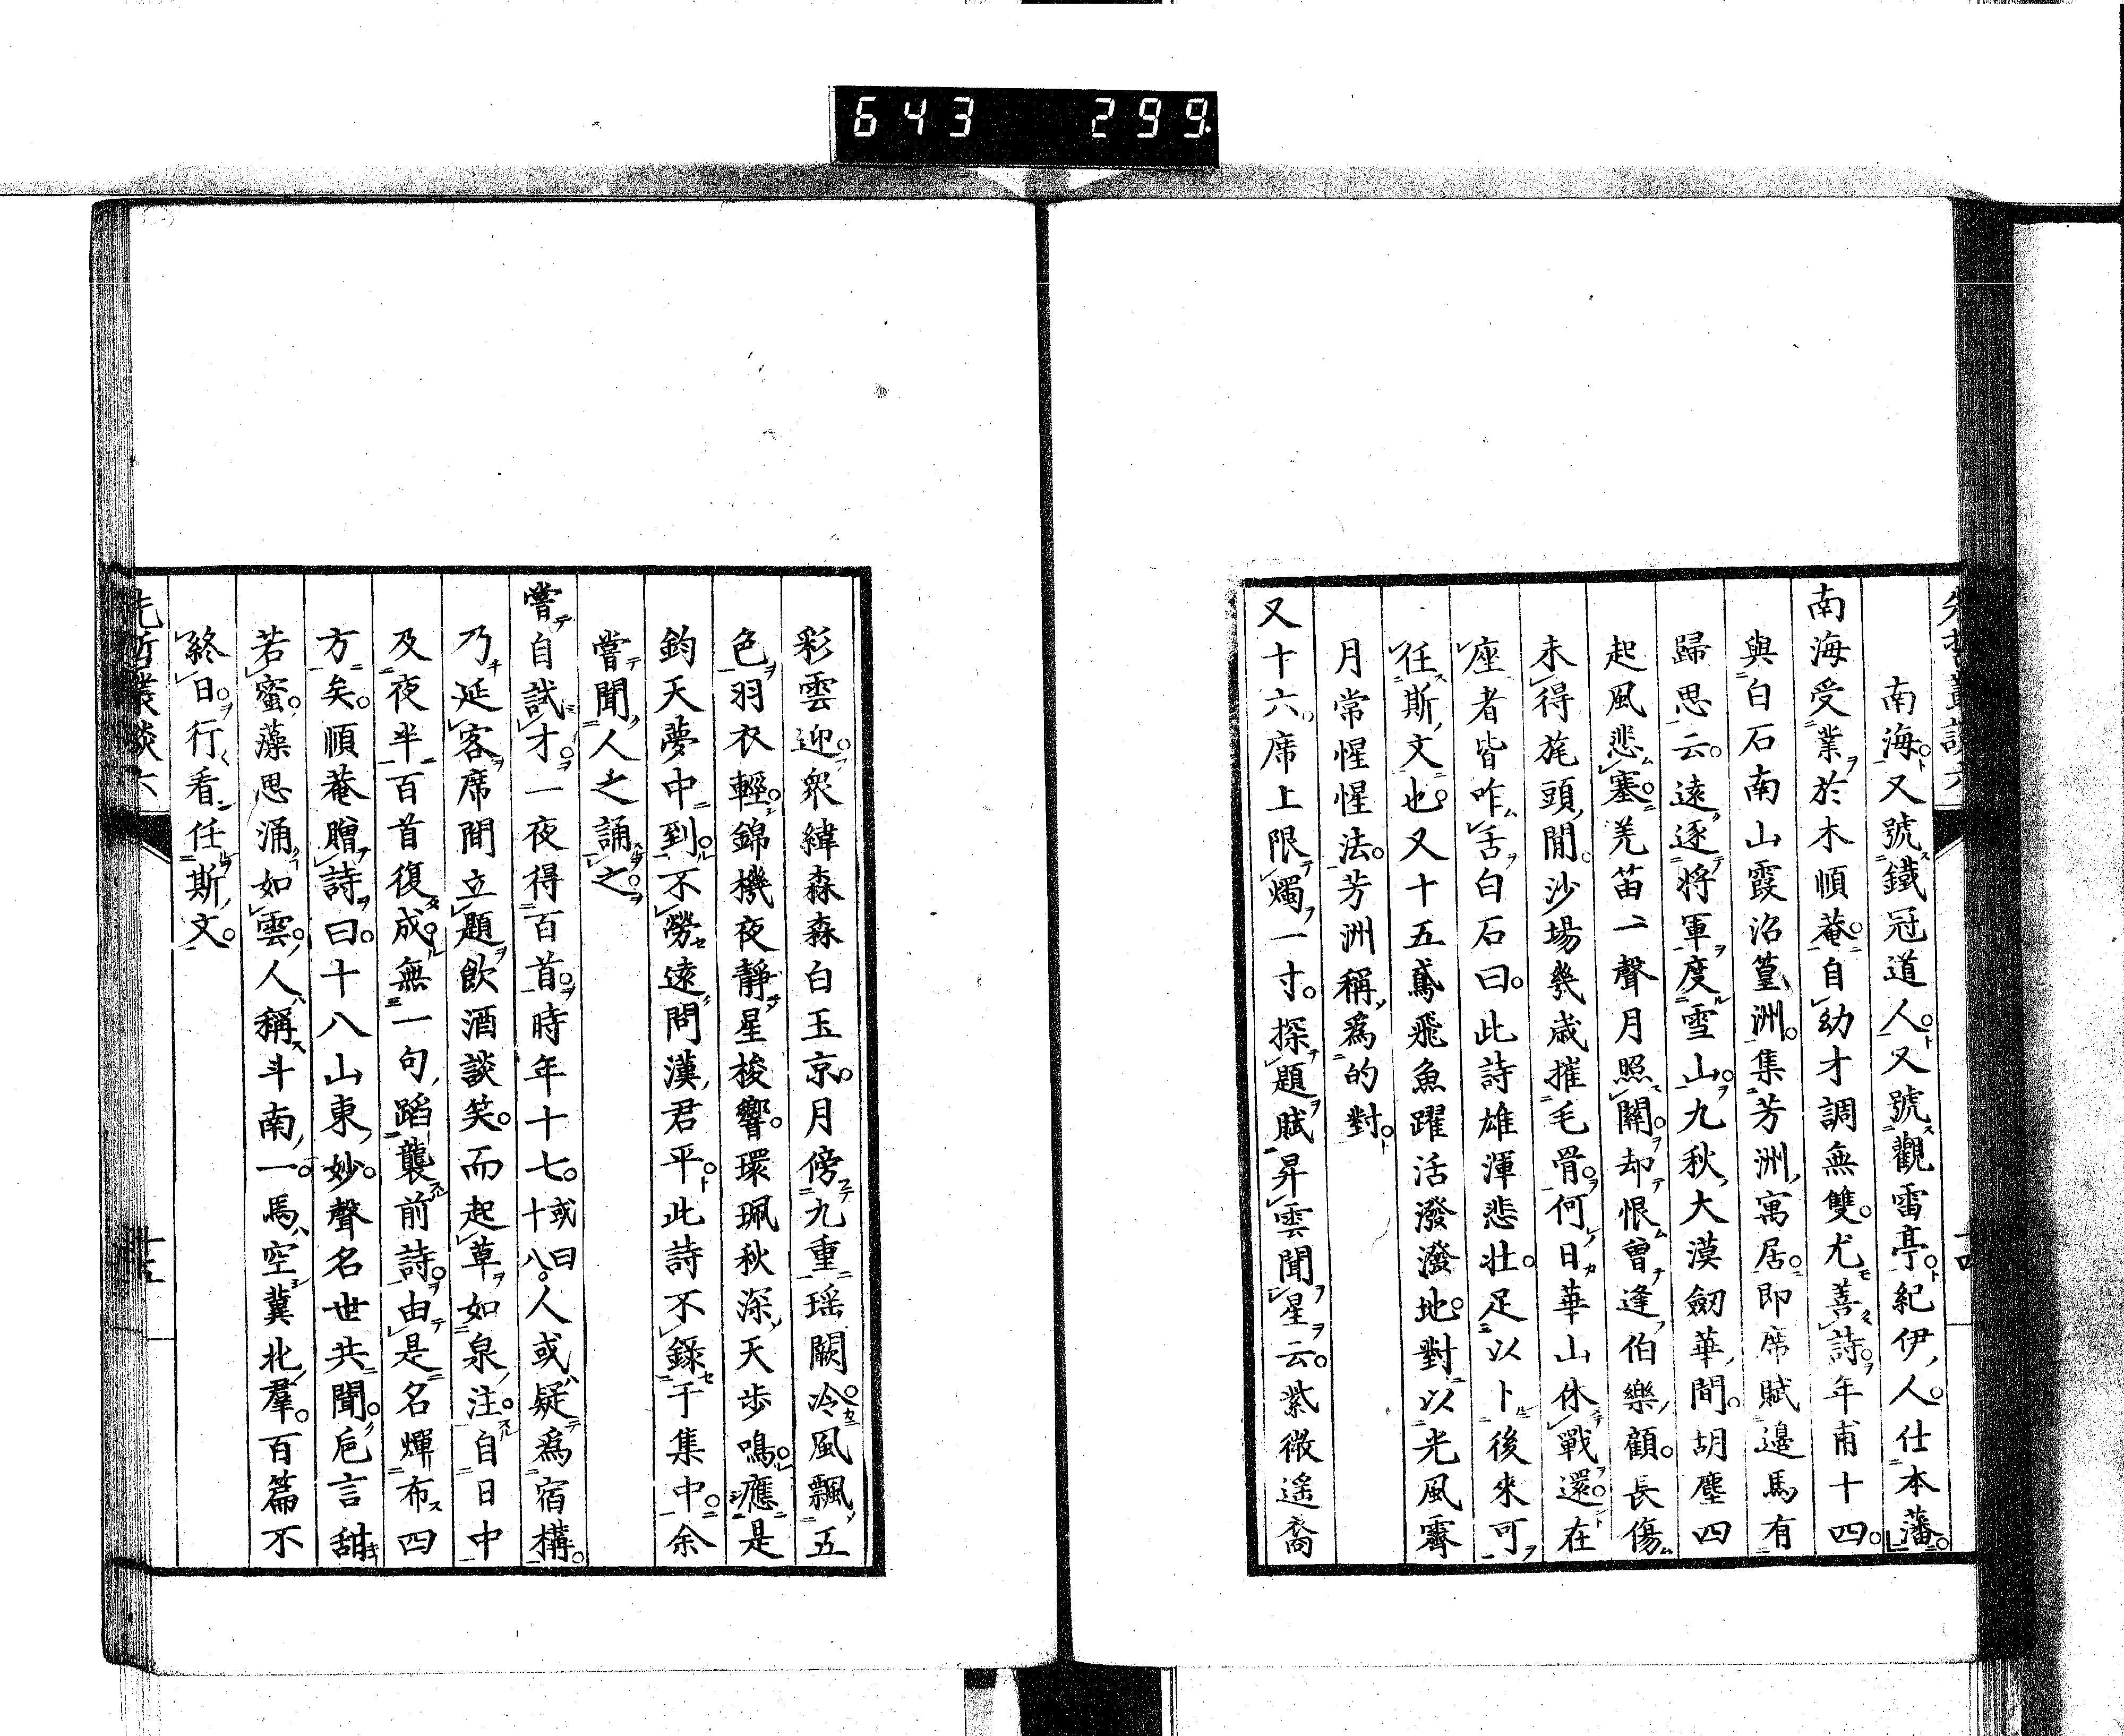 643 299
先哲叢談六 十四
南海又號鐵冠道人又號觀雷亭紀伊人仕本藩
南海受業於木順菴自幼才調無雙尤善詩年甫十四
與白石南山霞沼篁洲集芳洲寓居即席賦邊馬有
歸思云遠逐將軍度雪山九秋大漠劒華間胡塵四
起風悲塞羌笛一聲月照關却恨曾逢伯樂顧長傷
未得旄頭閒沙場幾歲摧毛骨何日華山休戰還在
座者皆咋舌白石曰此詩雄渾悲壯足以卜後來可
任斯文也又十五鳶飛魚躍活潑潑地對以光風霽
月常惺惺法芳洲稱爲的對
又十六席上限燭一寸探題賦昇雲聞星云紫微遙裔
彩雲迎衆緯森森白玉京月傍九重瑤闕冷風飄五
色羽衣輕錦機夜靜星梭響環珮秋深天步鳴應是
鈞天夢中到不勞遠問漢君平此詩不錄于集中余
嘗聞人之誦之
嘗自試才一夜得百首時年十七或曰十八人或疑爲宿構
乃延客席間立題飲酒談笑而起草如泉注自日中
及夜半百首復成無一句蹈襲前詩由是名燁布四
方矣順菴贈詩曰十八山東妙聲名世共聞巵言甜
若蜜藻思涌如雲人稱斗南一馬空冀北羣百篇不
終日行看任斯文
先哲叢談六 十五